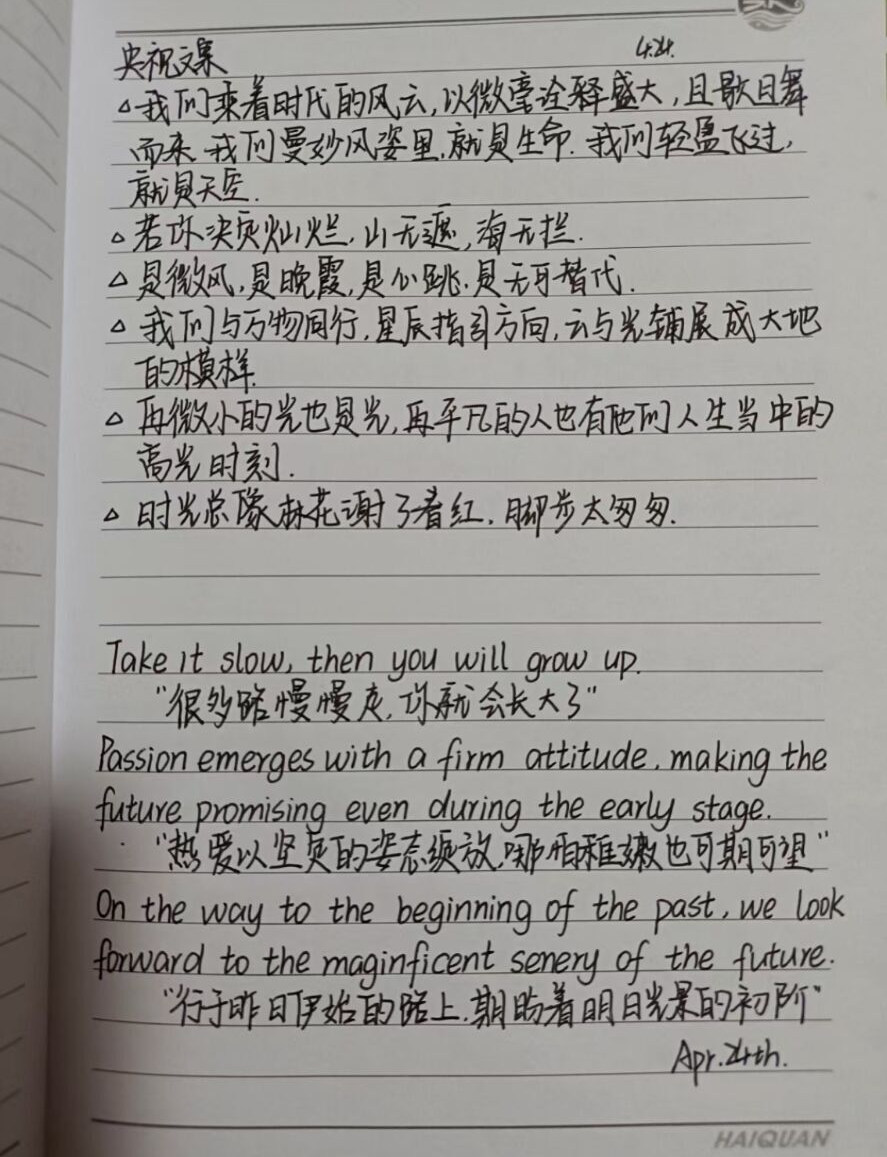 央视文案 4.24.
△我们乘着时代的风云,以微毫诠释盛大,且歌且舞
而来.我们曼妙风姿里,就是生命.我们轻盈飞过,
就是天空.
△若你决定灿烂,山无遮,海无拦.
△是微风,是晚霞,是心跳,是无可替代.
△我们与万物同行,星辰指引方向,云与光铺展成大地
的模样.
△再微小的光也是光,再平凡的人也有他们人生当中的
高光时刻.
△时光总像林花谢了春红,脚步太匆匆.
Take it slow, then you will grow up.
"很多路慢慢走,你就会长大了"
Passion emerges with a firm attitude, making the
future promising even during the early stage.
"热爱以坚定的姿态绽放,哪怕稚嫩也可期可望"
On the way to the beginning of the past, we look
forward to the maginficent senery of the future.
"行于昨日伊始的路上,期盼着明日光景的初阶"
Apr.24th.
HAIQUAN